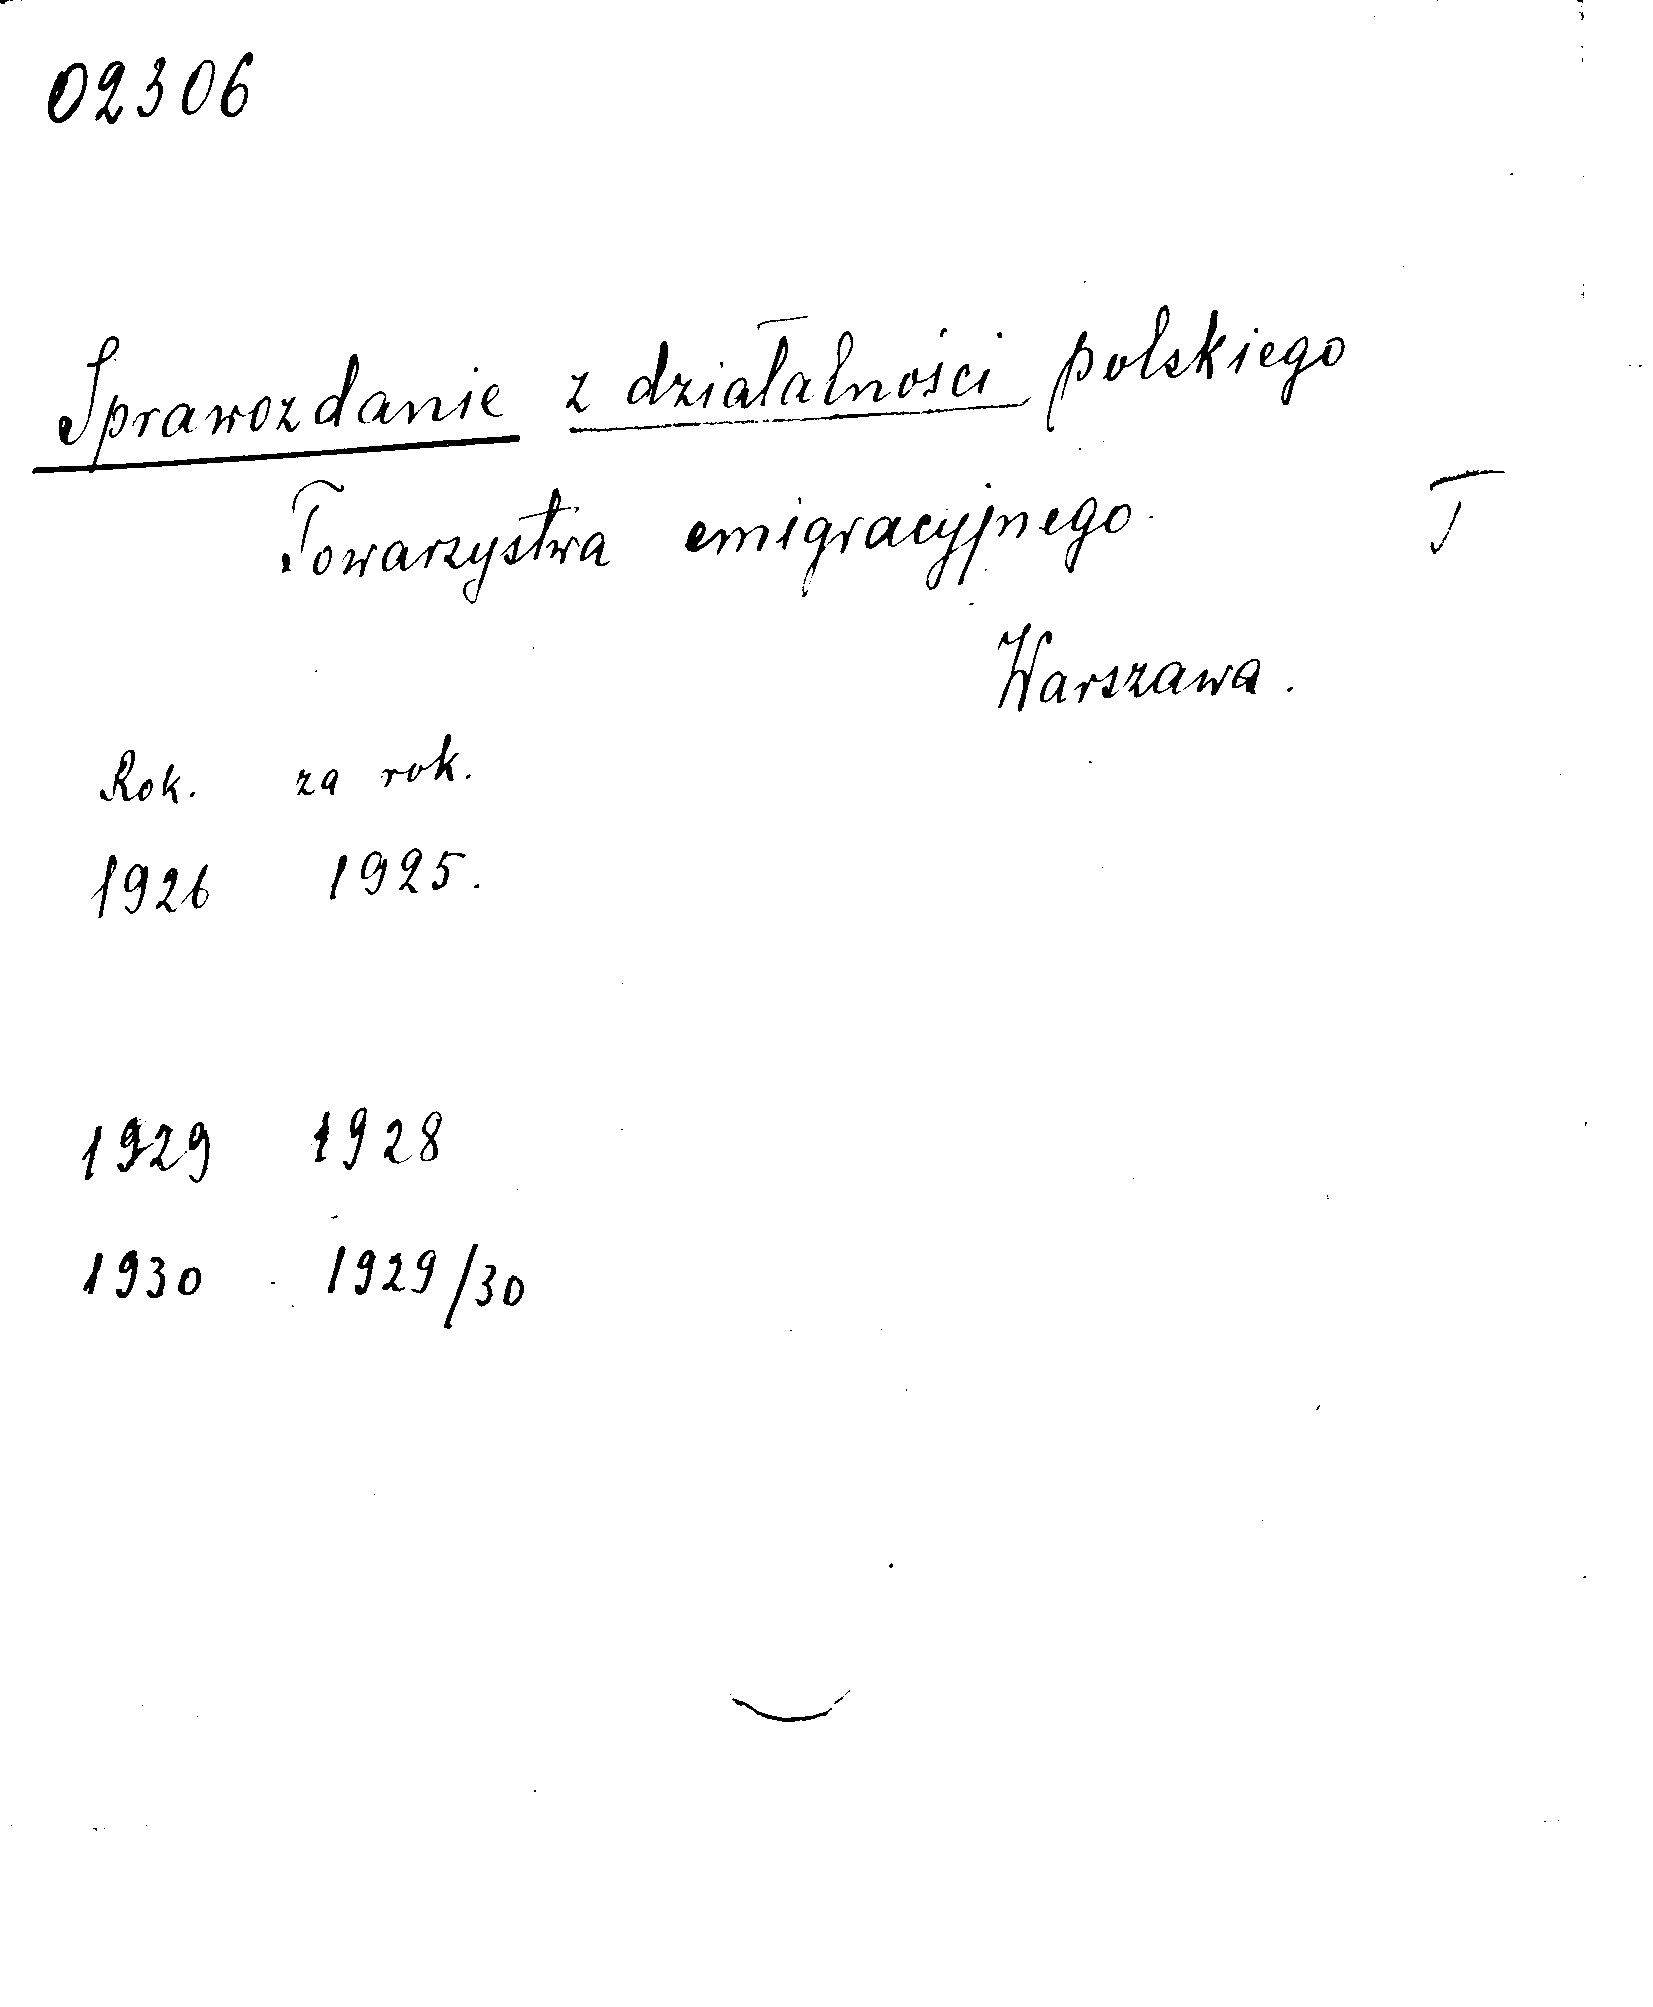 02306
Sprawozdanie z działalności polskiego
Towarzystwa emigracyjnego. T
Warszawa.
Rok. za rok.
1926 1925.
1929 1928
1930 1929/30